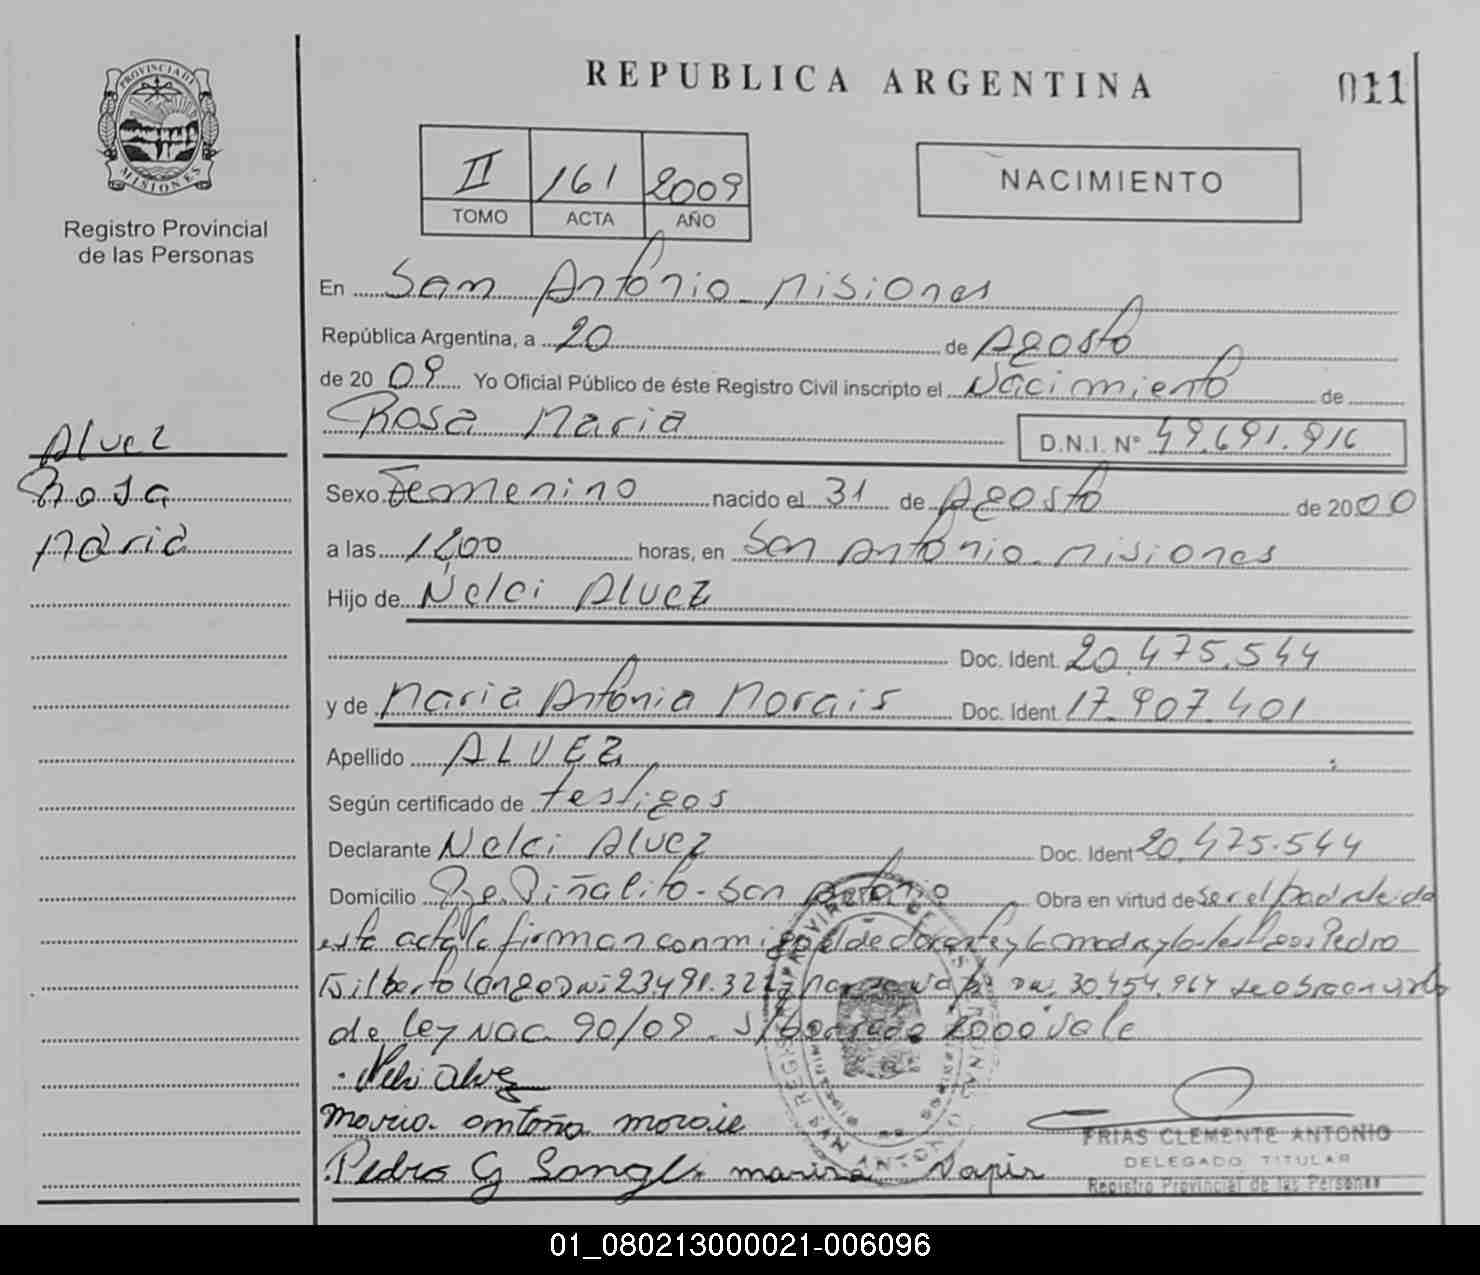 PROVINCIA DE
MISIONES
Registro Provincial
de las Personas
REPUBLICA ARGENTINA
011
II 161 2009
TOMO ACTA AÑO
NACIMIENTO
En San Antonio Misiones
República Argentina, a 20 de Agosto
de 2009 Yo Oficial Público de éste Registro Civil inscripto el Nacimiento de
Rosa Maria
D.N.I. N° 49.691.916
Alvez
Rosa
Maria
Sexo Femenino nacido el 31 de Agosto de 2000
a las horas, en San Antonio Misiones
Hijo de Nelci Alvez
Doc. Ident. 20.475.544
y de Maria Antonia Morais Doc. Ident. 17.907.401
Apellido ALVEZ
Según certificado de testigos
Declarante Nelci Alvez Doc. Ident 20.475.544
Domicilio Pje. Piñalito - San Antonio Obra en virtud de ser el padre leida
esta acta la firman conmigo el declarante y la madre y los testigos Pedro
Gilberto DNI 23491.322 30.454.964 se obra en virtud
de ley NAC. 90/09. S/borrado 2000 vale
Nelci Alvez
Maria antoña moraie
Pedro G marina
FRIAS CLEMENTE ANTONIO
DELEGADO TITULAR
Registro Provincial de las Personas
01_080213000021-006096